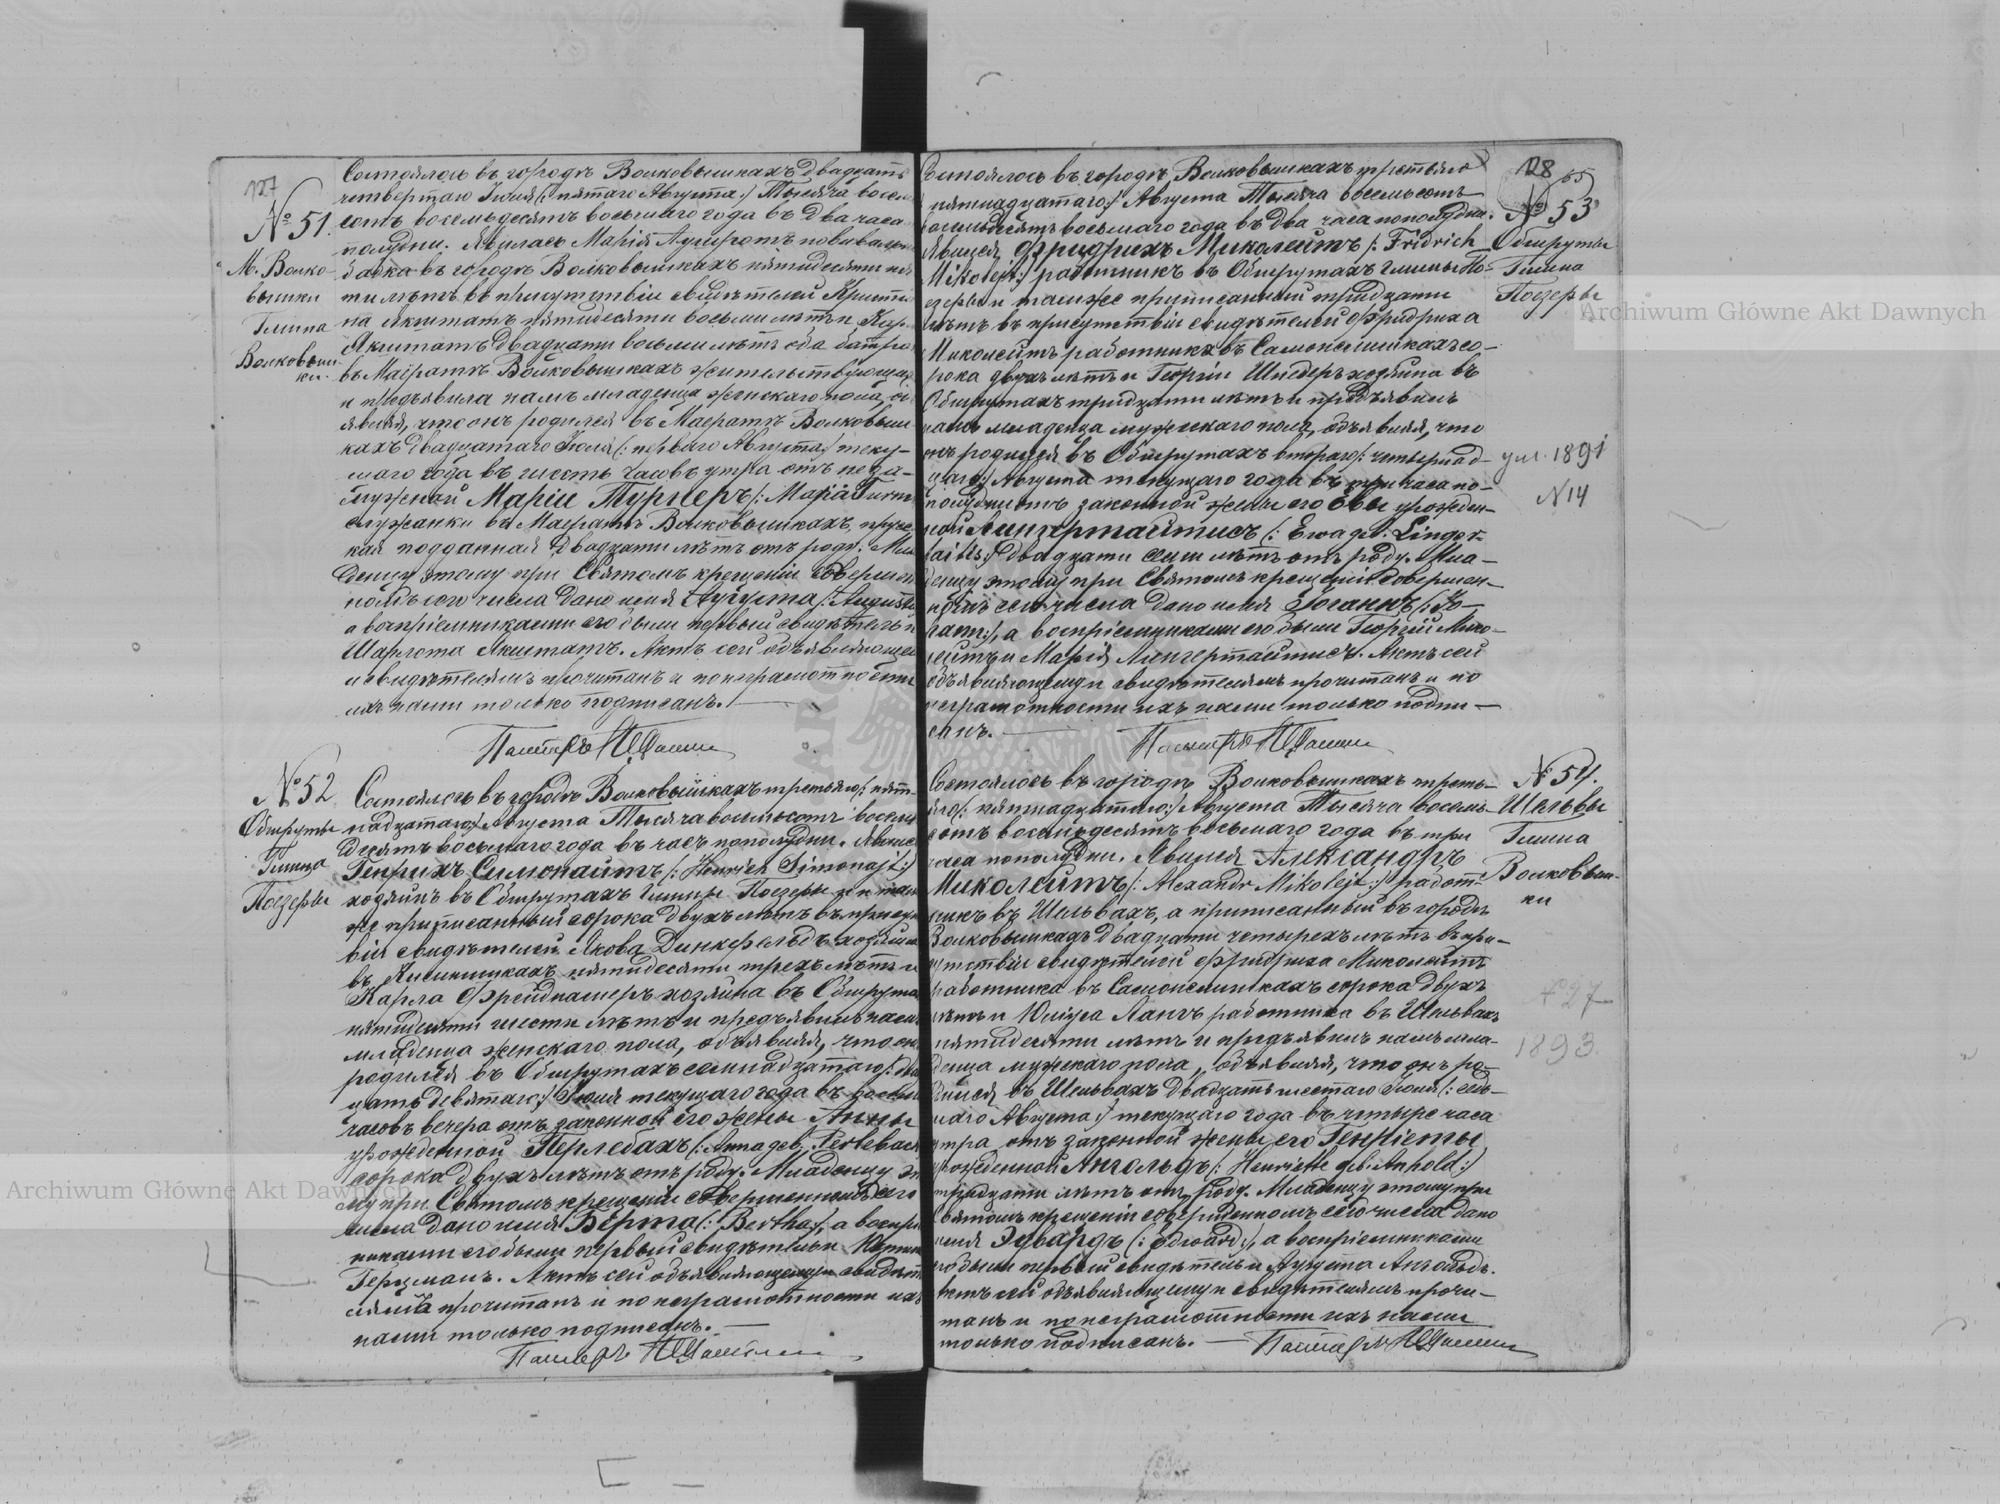 127
№ 51.
М. Волко-
вышки
Гмина
Волковыш-
ки.
Состоялось въ городѣ Волковышкахъ двадцать
четвертаго Іюля (: пятаго Августа :) Тысяча восем
сотъ восемьдесятъ восьмаго года въ два часа
полудни. Явилась Марія повиваль
бабка въ городѣ Волковышкахъ пятидесяти
ти лѣтъ въ присутствіи свидѣтелей Христи
на Акштатъ пятидесяти восьми лѣтъ и Кар
Акштатъ двадцати восьми лѣтъ оба
въ Маіратѣ Волковышкахъ жительствующи
и предъявила намъ младенца женскаго пола, об
являя, что онъ родился въ Маератѣ Волковыш
кахъ двадцатаго Іюля (: перваго Августа :) теку-
щаго года въ шесть часовъ утра отъ неза-
мужней Маріи Турнеръ (: Maria Turn
служанки въ Маератѣ Волковышкахъ, прусс
кая подданная двадцати лѣтъ отъ роду. Мла
денцу этому при Святомъ крещеніи совершен
номъ сего числа дано имя Августа (: Augusta
а воспріемниками его были первый свидѣтель и
Шарлота Акштатъ. Актъ сей объявляющей
и свидѣтелямъ прочитанъ и по неграмотности
ихъ нами только подписанъ.
Пасторъ
№ 52
Обшруты
Гмина
Поезеры
Состоялось въ городѣ Волковышкахъ третьяго (: пят-
надцатаго :) Августа Тысяча восемьсотъ восемь
десятъ восьмаго года въ часъ пополудни. Явился
Генрихъ Симонайтъ (: Henrich Simonajt :)
хозяинъ въ Обшрутахъ гмины Поезеры и там
же приписанный сорока двухъ лѣтъ въ присут
віи свидѣтелей Якова Динкфельдъ хозяина
въ пятидесяти трехъ лѣтъ и
Карла хозяина въ Обшрута
пятидесяти шести лѣтъ и предъявилъ намъ
младенца женскаго пола, объявляя, что онъ
родился въ Обшрутахъ семнадцатаго (: два
цать девятаго :) Іюля текущаго года въ восемь
часовъ вечера отъ законной его жены Анны
урожденной Перлебахъ (: Anna geb. Perlebach
сорока двухъ лѣтъ отъ роду. Младенцу это
му при Святомъ крещеніи совершенномъ сего
числа дано имя Берта (: Bertha :), а воспрі
никами его были первый свидѣтель и
Герцманъ. Актъ сей объявляющему и свидѣт
лямъ прочитанъ и по неграмотности ихъ
нами только подписанъ.
Пасторъ
128
65
№ 53
Обшруты
Гмина
Поезеры
ум. 1891
N 14
Состоялось въ городѣ Волковышкахъ третьяго
пятнадцатаго :) Августа Тысяча восемьсотъ
восемьдесятъ восьмаго года въ два часа пополудни.
Явился Фридрихъ Миколейтъ (: Fridrich
Mikolejt :) работникъ въ Обшрутахъ гмины По-
езеры и тамже приписанный тридцати
лѣтъ въ присутствіи свидѣтелей Фридриха
Миколейтъ работника въ со-
рока двухъ лѣтъ и Георгія Шнедеръ хозяина въ
Обшрутахъ тридцати лѣтъ и предъявилъ
намъ младенца мужескаго пола, объявляя, что
онъ родился въ Обшрутахъ втораго (: четырнад-
цаго :) Августа текущаго года въ три часа по-
полудни отъ законной жены его Евы урожден-
ной Лингертайтисъ (: Ewa geb. Linger-
taitis :) двадцати семи лѣтъ отъ роду. Мла-
денцу этому при Святомъ крещеніи совершен-
номъ сего числа дано имя Іоганнъ (: Jo-
hann :), а воспріемниками его были Георгій Мико-
лейтъ и Марія Лингертайтисъ. Актъ сей
объявляющему и свидѣтелямъ прочитанъ и по
неграмотности ихъ нами только подпи-
санъ.
Пасторъ
№ 54.
Шельвы
Гмина
Волковыш-
ки
№ 27
1893.
Состоялось въ городѣ Волковышкахъ треть-
яго (: пятнадцатаго :) Августа Тысяча восемь-
сотъ восемьдесятъ восьмаго года въ три
часа пополудни. Явился Александръ
Миколейтъ (: Alexandr Mikolejt :) работ-
никъ въ Шельвахъ, а приписанный въ городѣ
Волковышкахъ двадцати четырехъ лѣтъ въ при-
сутствіи свидѣтелей Фридриха Миколейтъ
работника въ сорока двухъ
лѣтъ и Юлiуса Лангъ работника въ Шельвахъ
пятидесяти лѣтъ и предъявилъ намъ мла-
денца мужескаго пола, объявляя, что онъ ро-
дился въ Шельвахъ двадцать шестаго Іюля (: седь-
маго Августа :) текущаго года въ четыре часа
утра отъ законной жены его Генріеты
урожденной Ангольдъ (: Henriette geb. Anhold :)
тридцати лѣтъ отъ роду. Младенцу этому при
Святомъ крещеніи совершенномъ сего числа дано
имя Эдвардъ (: Edward :), а воспріемниками
его были первый свидѣтель и Августа Ангольдъ.
Актъ сей объявляющему и свидѣтелямъ прочи-
танъ и по неграмотности ихъ нами
только подписанъ. Пасторъ
Archiwum Główne Akt Dawnych
Archiwum Główne Akt Dawnych